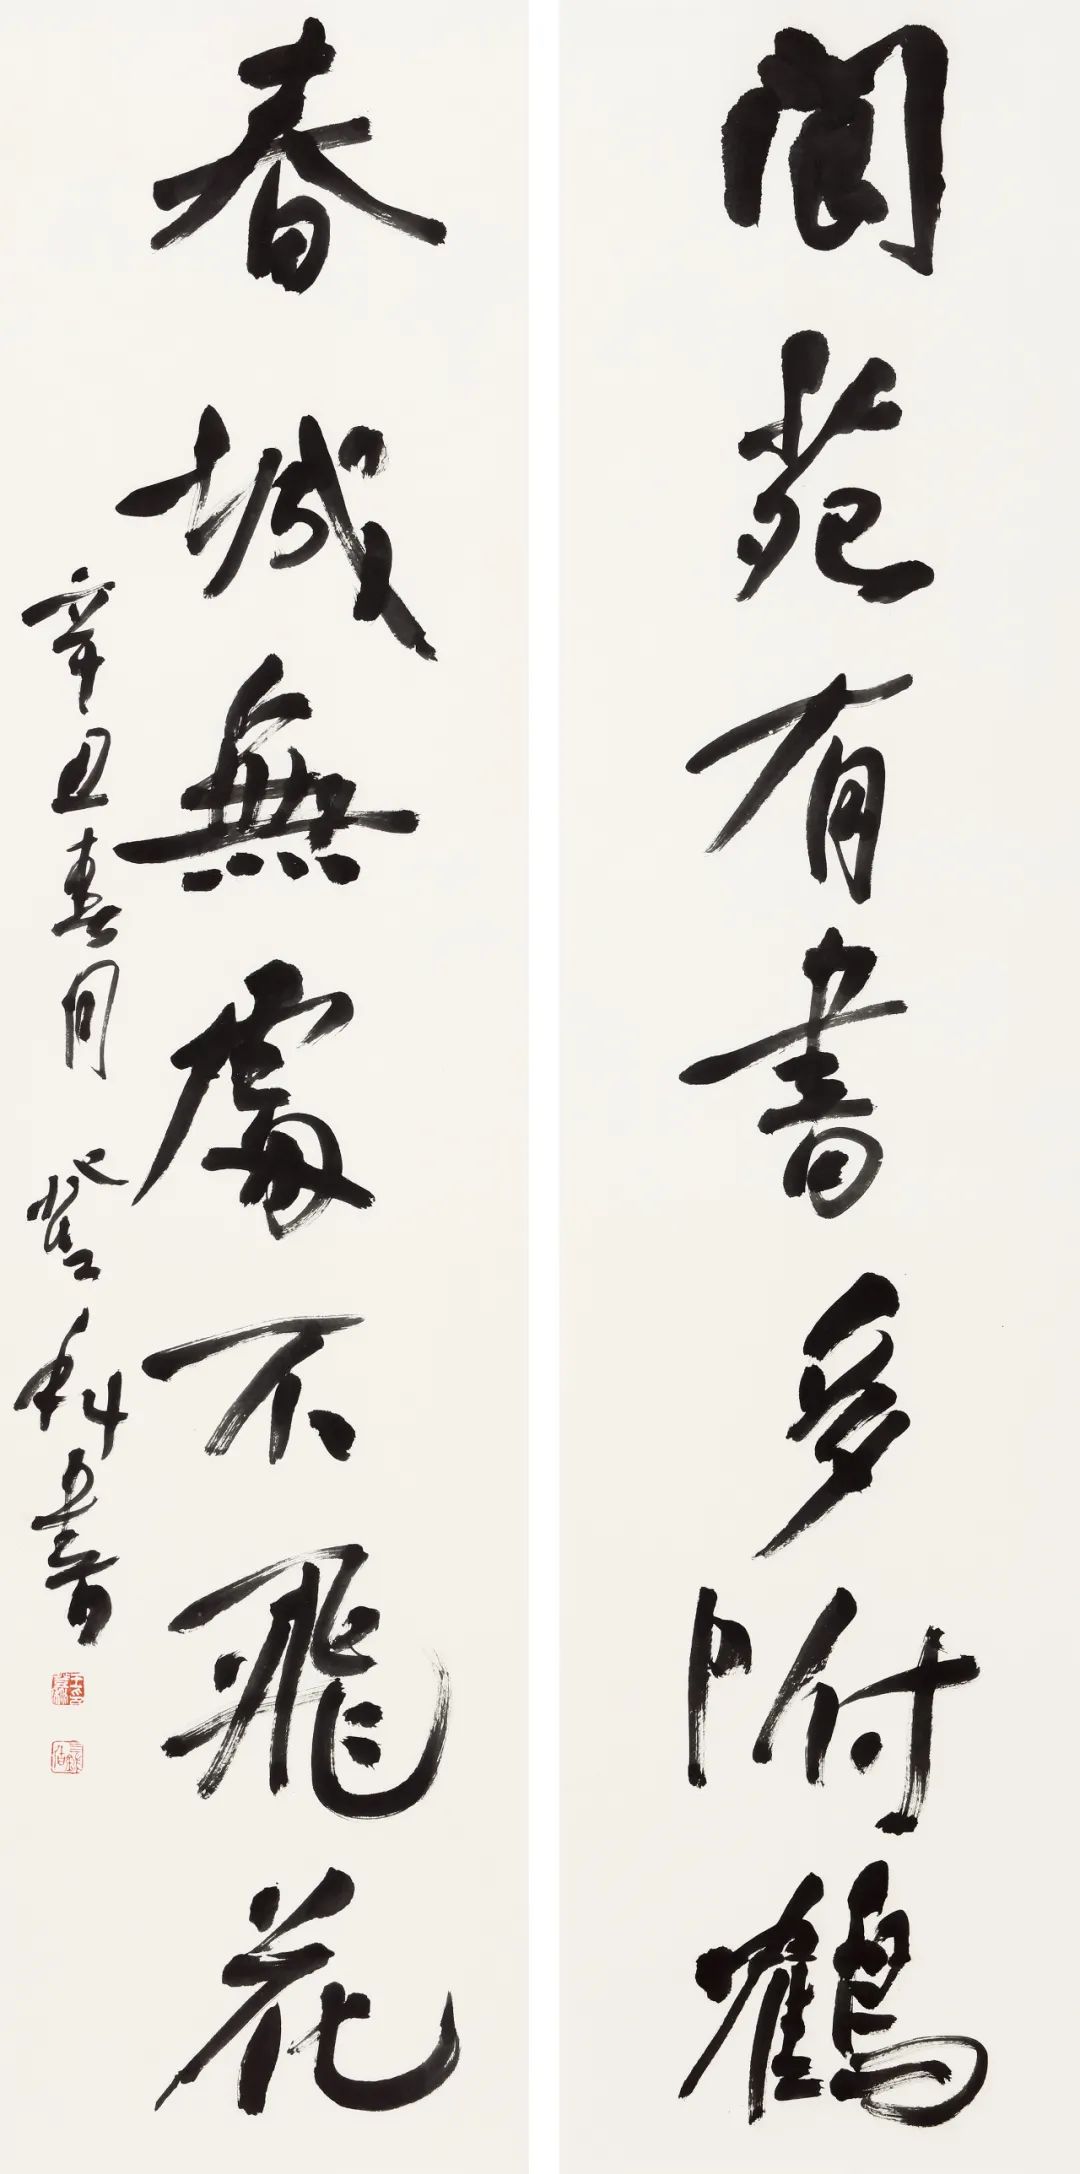 閬苑有書多附鶴
春城無處不飛花
辛丑春月 登科書